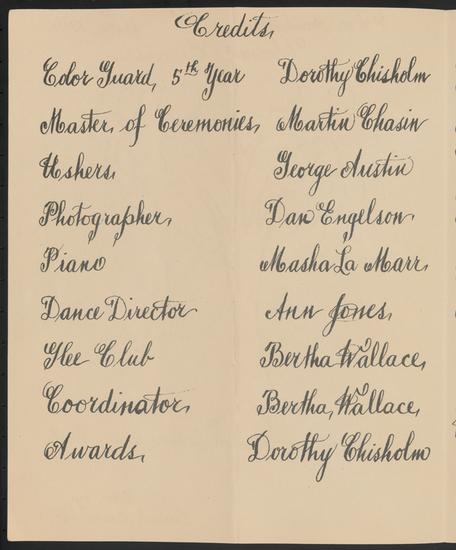 Credits,
Color Guard, 5th Year Dorothy Chisholm
Master, of Ceremonies, Martin Chasin
Ushers, George Austin
Photographer, Dan Engelson,
Piano Masha La Marr,
Dance Director Ann Jones,
Glee Club Bertha Wallace,
Coordinator, Bertha, Wallace,
Awards, Dorothy Chisholm